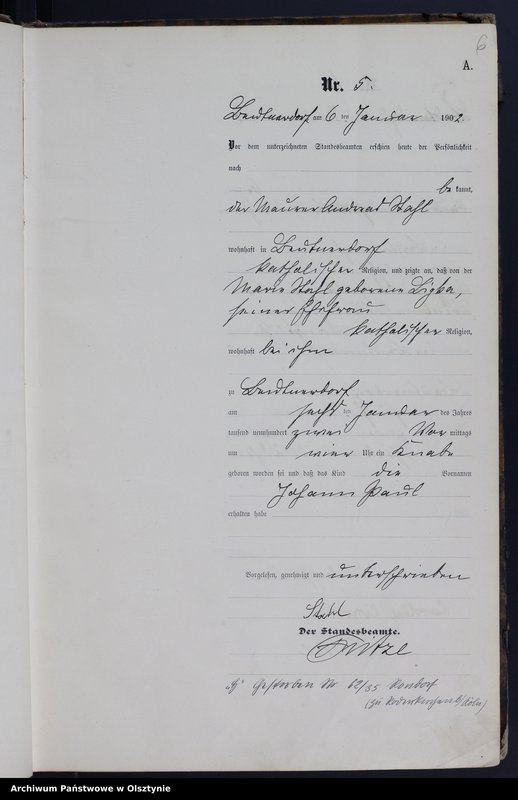 6
A.
Nr. 5.
Beutnerdorf am 6 ten Januar 1902.
Vor dem unterzeichneten Standesbeamten erschien heute der Persönlichkeit
nach
be kannt,
der Maurer Andreas Stahl
wohnhaft in Beutnerdorf
katholischer Religion, und zeigte an, daß von der
Marie Stahl geborene Ligka,
seiner Ehefrau
katholischer Religion,
wohnhaft bei ihm
zu Beutnerdorf
am sechs ten Januar des Jahres
tausend neunhundert zwei Vor mittags
um vier Uhr ein Knabe
geboren worden sei und daß das Kind die Vornamen
Johann Paul
erhalten habe
Vorgelesen, genehmigt und unterschrieben
Stahl
Der Standesbeamte.
Gestorben Nr 62/35 Rondorf
(zu Rodenkirchen b/Köln)
Archiwum Państwowe w Olsztynie